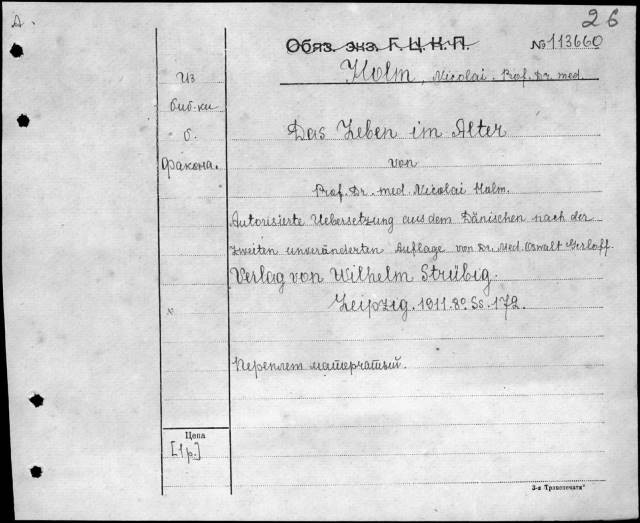 А.
26
Обяз. экз. Г.Ц.К.П.
№ 113660
Holm, Nicolai. Prof. Dr. med.
Из
биб-ки
б.
Факона.
Das Leben im Alter
von
Prof. Dr. med. Nicolai Holm.
Autorisierte Uebersetzung aus dem Dänischen nach der
zweiten unveränderten Auflage von Dr. Med. Oswalt Gerloff.
Verlag von Wilhelm Strübig.
Leipzig. 1911. 8º Ss. 172.
x
Переплет матерчатый.
Цена
[1 р.]
3-я Транспечать"